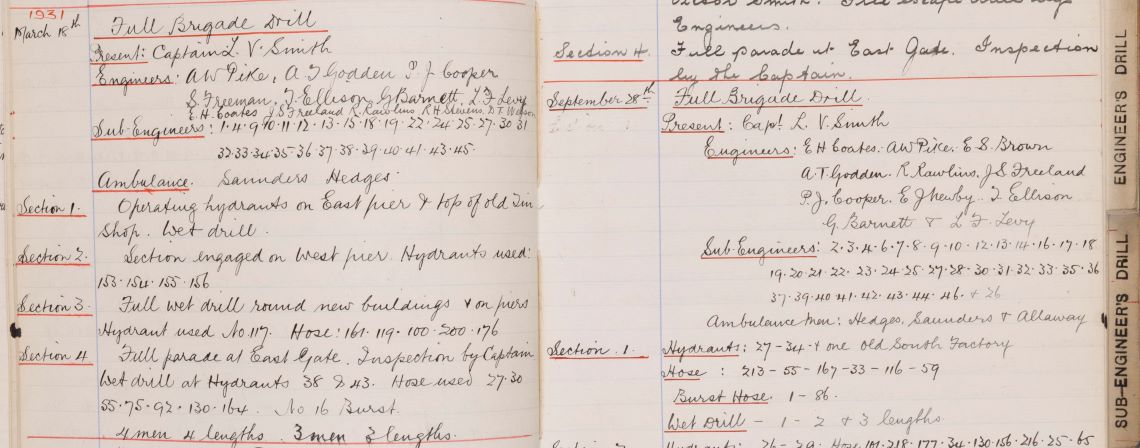 1931
March 18th Full Brigade Drill
Present: Captain L. V. Smith
Engineers: A W Pike, A T Godden P. J. Cooper
S. Freeman, T. Ellison, G Barnett, L. F. Levy
E. H. Coates J S Freeland R. Rawlins, R H Stevens, D. T. Watson
Sub-Engineers: 1·4·9·10·11·12·13·15·18·19·22·24·25·27·30·31
32·33·34·35·36·37·38·39·40·41·43·45·
Ambulance. Saunders Hedges·
Section 1. Operating hydrants on East pier & top of old Tin
Shop. Wet drill.
Section 2. Section engaged on West pier. Hydrants used:
153·154·155·156
Section 3. Full wet drill round new buildings & on piers
Hydrant used No 117. Hose: 161·119·100·200·176
Section 4 Full parade at East Gate. Inspection by Captain
Wet drill at Hydrants 38 & 43. Hose used 27·30
55·75·92·130·164. No 16 Burst.
4 men 4 lengths. 3 men 3 lengths.
Engineers.
Section 4. Full parade at East Gate. Inspection
by the Captain.
September 28th Full Brigade Drill.
Present: Capt. L. V. Smith
Engineers: E H Coates. A W Pike. E. S. Brown
A. T. Godden. R. Rawlins, J S Freeland
P. J. Cooper. E J Newby. T. Ellison
G. Barnett & L. F. Levy
Sub-Engineers: 2·3·4·6·7·8·9·10·12·13·14·16·17·18
19·20·21·22·23·24·25·27·28·30·31·32·33·35·36
37·39·40·41·42·43·44·46·+ 26
Ambulance Men: Hedges, Saunders & Allaway
Section. 1. Hydrants: 27-34-& one old South Factory
Hose: 213-55-167-33-116-59
Burst Hose. 1-86.
Wet Drill - 1 - 2 & 3 lengths.
Hydrants: 26-29. Hose 101·218·177·34·130·156·216·25·65
ENGINEER'S DRILL
SUB-ENGINEER'S DRILL